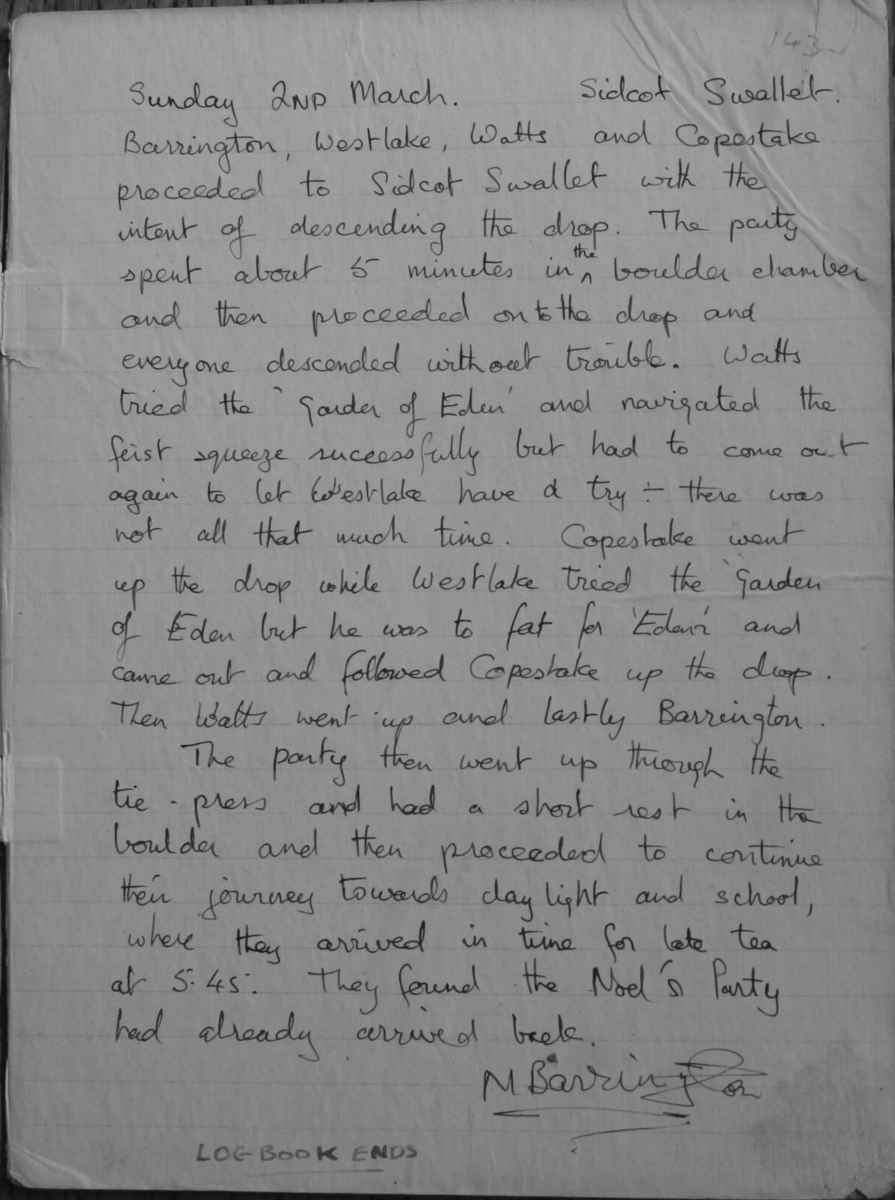 143
Sunday 2ND March. Sidcot Swallet.
Barrington, Westlake, Watts and Copestake
proceeded to Sidcot Swallet with the
intent of descending the drop. The party
spent about 5 minutes in the boulder chamber
and then proceeded on to the drop and
everyone descended without trouble. Watts
tried the 'Garden of Eden' and navigated the
feist squeeze successfully but had to come out
again to let Westlake have a try ÷ there was
not all that much time. Copestake went
up the drop while Westlake tried the 'Garden
of Eden but he was to fat for 'Eden' and
came out and followed Copestake up the drop.
Then Watts went up and lastly Barrington.
The party then went up through the
tie-press and had a short rest in the
boulder and then proceeded to continue
their journey towards daylight and school,
where they arrived in time for late tea
at 5.45. They found the Noel's Party
had already arrived back.
M Barrington
LOG BOOK ENDS